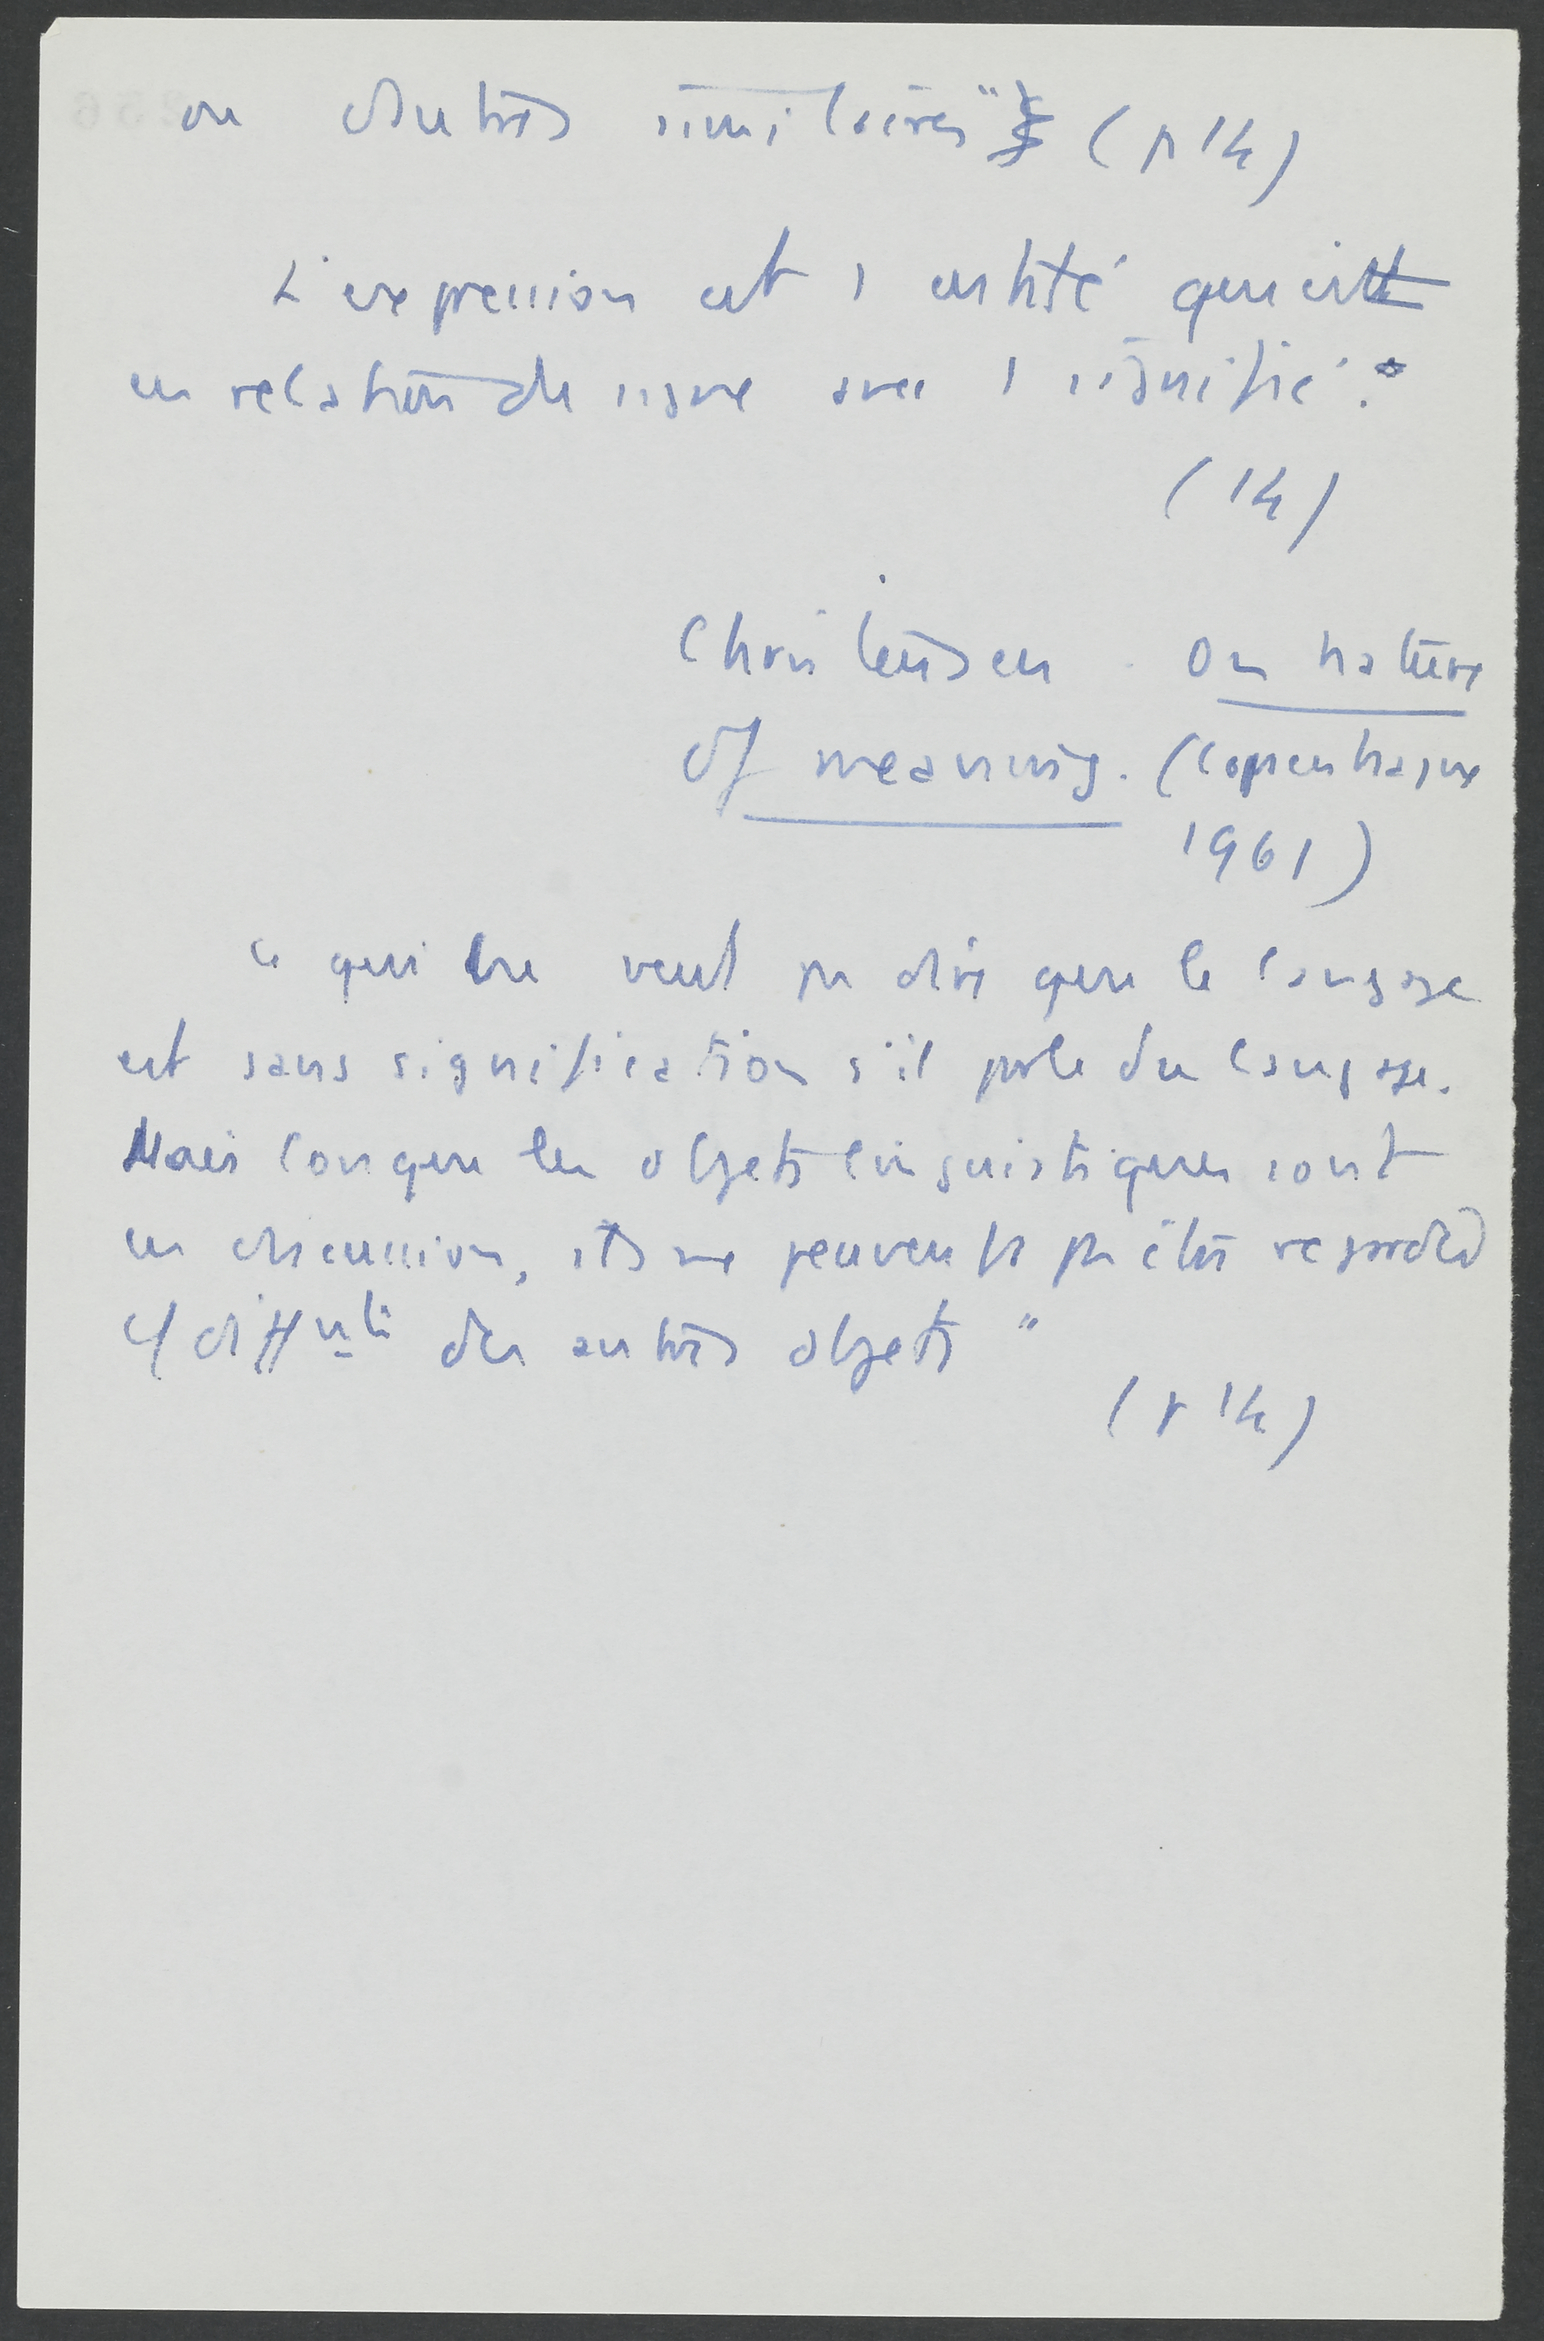 ou d'autres similaires" (p 14)
L'expression est 1 entité qui est
en relation de signe avec 1 signifié.
(14)
Christensen. On nature
of meaning. (Copenhague
1961)
Ce qui ne veut pas dire que le langage
est sans signification s'il parle du langage.
Mais lorsque les objets linguistiques sont
en discussion, ils ne peuvent pas être regardés
différents des autres objets"
(p 14)